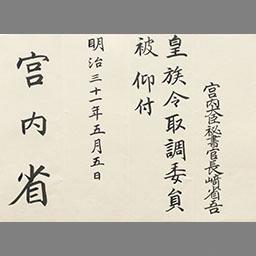 宮内大臣秘書官長﨑省吾
皇族令取調委員
被仰付
明治三十一年五月五日
宮内省